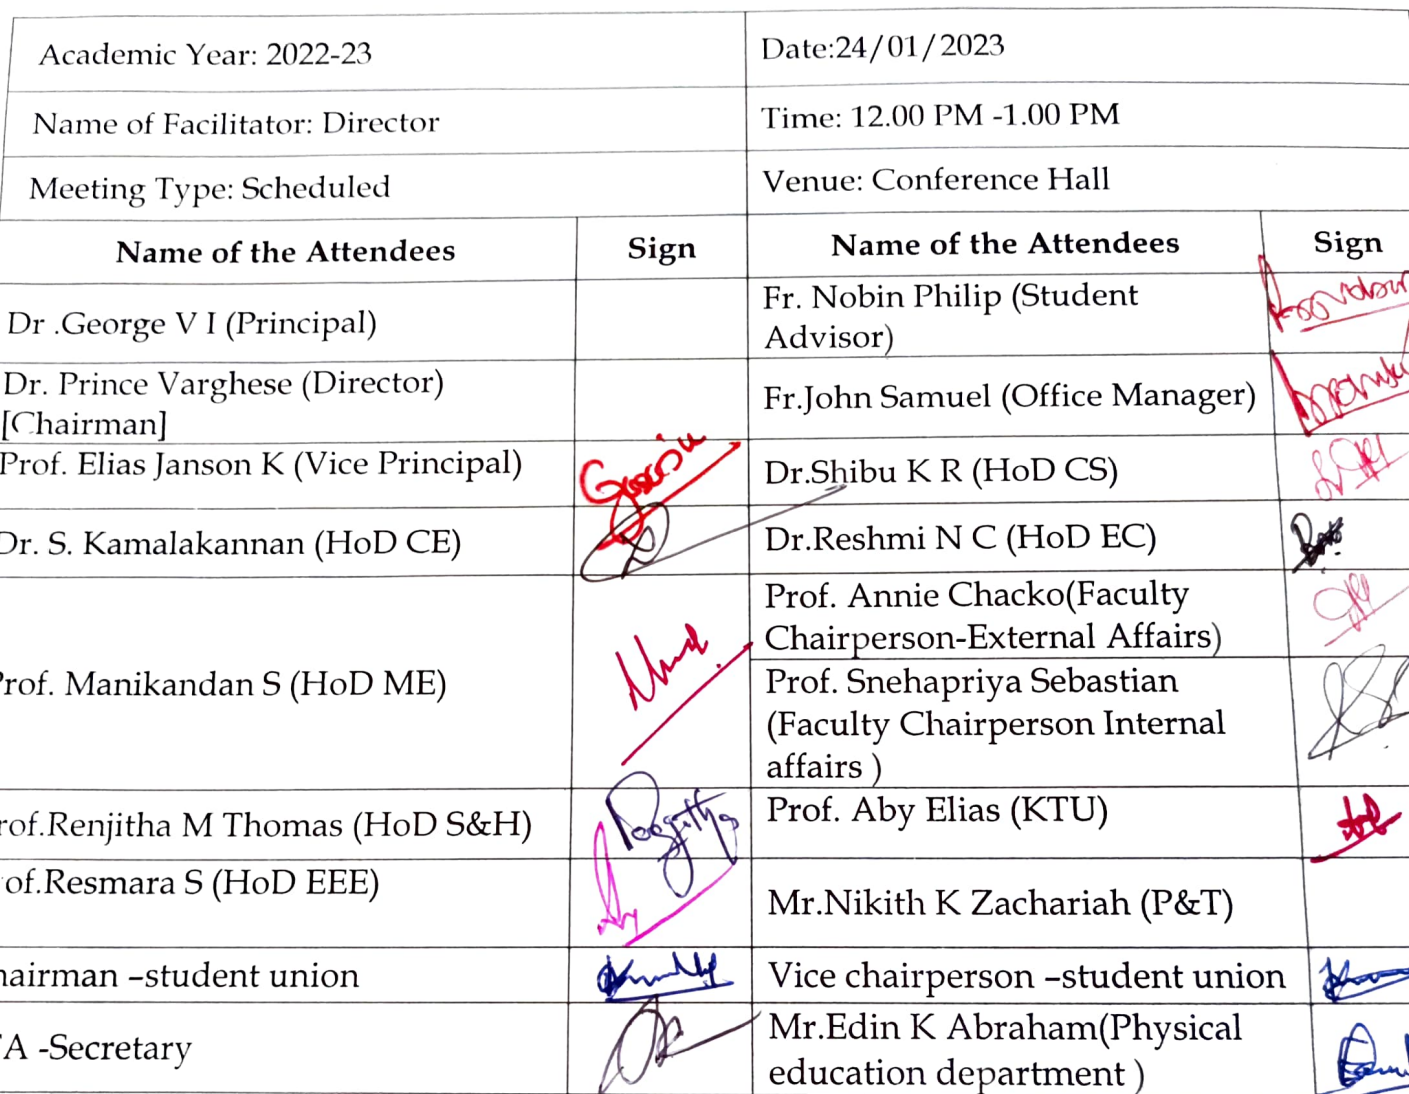 Academic Year: 2022-23
Date:24/01/2023
Name of Facilitator: Director
Time: 12.00 PM -1.00 PM
Meeting Type: Scheduled
Venue: Conference Hall
Name of the Attendees
Sign
Name of the Attendees
Sign
Dr .George V I (Principal)
Fr. Nobin Philip (Student
Advisor)
Dr. Prince Varghese (Director)
[Chairman]
Fr.John Samuel (Office Manager)
Prof. Elias Janson K (Vice Principal)
Dr.Shibu K R (HoD CS)
Dr. S. Kamalakannan (HoD CE)
Dr.Reshmi N C (HoD EC)
Prof. Manikandan S (HoD ME)
Prof. Annie Chacko(Faculty
Chairperson-External Affairs)
Prof. Snehapriya Sebastian
(Faculty Chairperson Internal
affairs )
rof.Renjitha M Thomas (HoD S&H)
Prof. Aby Elias (KTU)
of.Resmara S (HoD EEE)
Mr.Nikith K Zachariah (P&T)
hairman –student union
Vice chairperson –student union
A -Secretary
Mr.Edin K Abraham(Physical
education department )